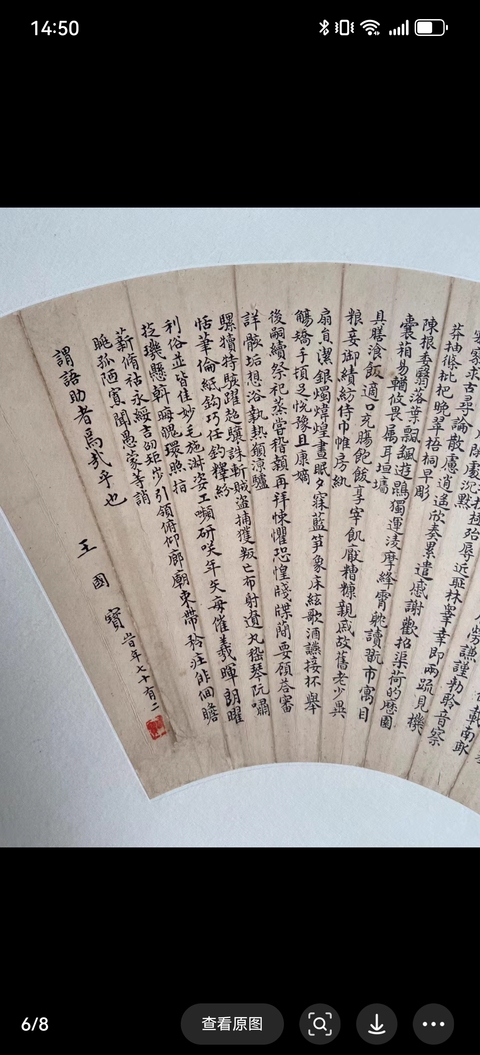 14:50
殆辱近恥林皋幸即兩疏見機
閒處沉默
寥求古尋論散慮逍遙欣奏累遣慼謝歡招渠荷的歷園
莽抽條枇杷晚翠梧桐早彫
陳根委翳落葉飄颻遊鵾獨運凌摩絳霄耽讀翫市寓目
囊箱易輶攸畏屬耳垣墻
具膳湌飯適口充腸飽飫享宰飢厭糟糠親戚故舊老少異
粮妾御績紡侍巾帷房紈
扇員潔銀燭煒煌晝眠夕寐藍笋象床絃歌酒讌接杯舉
觴矯手頓足悅豫且康嫡
後嗣續祭祀蒸嘗稽顙再拜悚懼恐惶牋牒簡要顧荅審
詳骸垢想浴執熱願涼驢
騾犢特駭躍超驤誅斬賊盜捕獲叛亡布射遼丸嵇琴阮嘯
恬筆倫紙鈞巧任釣釋紛
利俗並皆佳妙毛施淑姿工嚬研咲年矢每催羲暉朗曜
旋璣懸斡晦魄環照指
薪脩祜永綏吉劭矩步引領俯仰廊廟束帶矜庄徘徊瞻
眺孤陋寡聞愚蒙等誚
謂語助者焉哉乎也
王國寶 旹年七十有二
6/8
查看原图